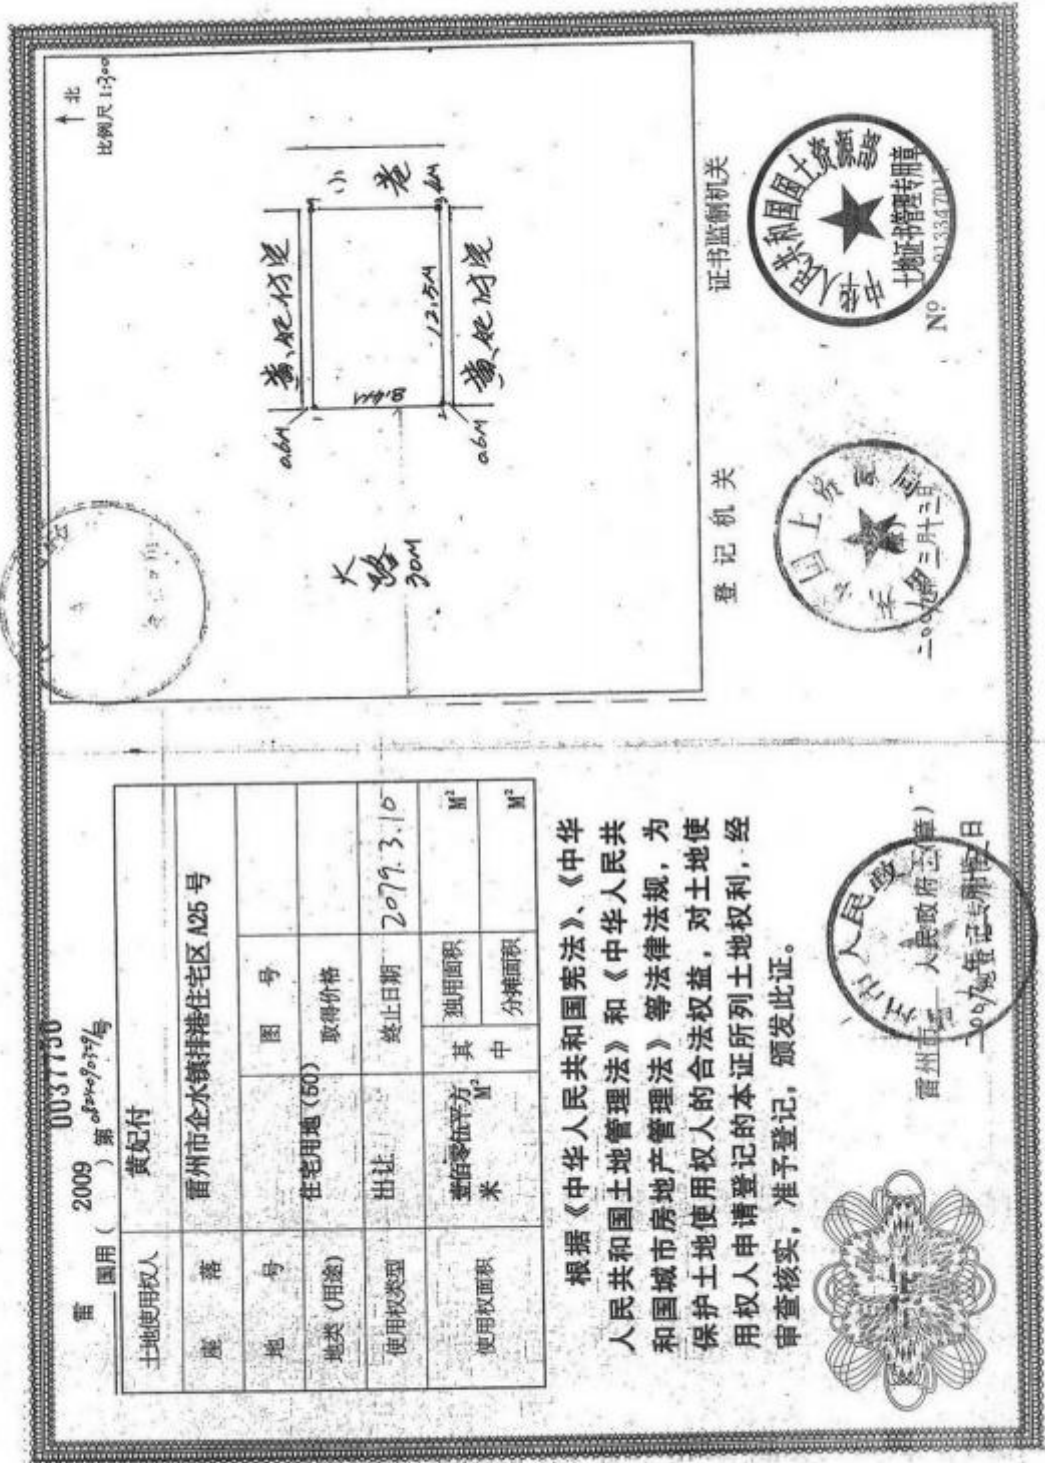 0037750
雷 国用（ 2009 ）第 号
土地使用权人 黄妃付
座 落 雷州市企水镇排港住宅区 A25 号
地 号 图 号
地类（用途） 住宅用地（50） 取得价格
使用权类型 出让 终止日期 2079.3.10
使用权面积 壹佰零伍平方米 M² 其中 独用面积 M²
分摊面积 M²
根据《中华人民共和国宪法》、《中华
人民共和国土地管理法》和《中华人民共
和国城市房地产管理法》等法律法规，为
保护土地使用权人的合法权益，对土地使
用权人申请登记的本证所列土地权利，经
审查核实，准予登记，颁发此证。
雷州市 人民政府（章）
北
比例尺 1:300
0.6M
12.5M
0.6M
小巷
大路
30M
登 记 机 关
证书监制机关
中华人民共和国国土资源部
土地证书管理专用章
Nº